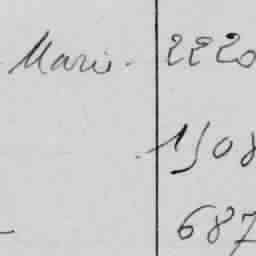 Marie. 2220
1508
687